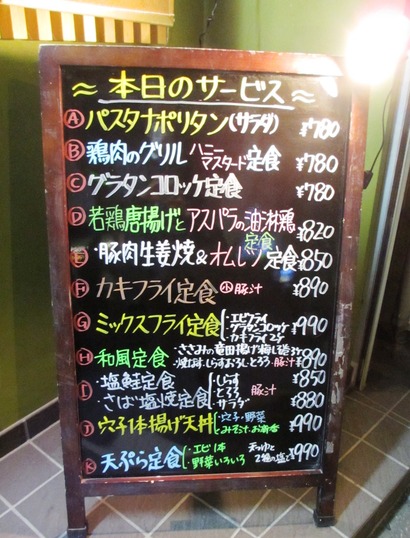 ～本日のサービス～
Ⓐパスタナポリタン(サラダ) ¥780
Ⓑ鶏肉のグリル ハニーマスタード定食 ¥780
Ⓒグラタンコロッケ定食 ¥780
Ⓓ若鶏唐揚げとアスパラの油淋鶏定食 ¥820
Ⓔ・豚肉生姜焼&オムレツ定食 ¥850
カキフライ定食 小豚汁 ¥890
Ⓖミックスフライ定食 ・エビフライ ・グラタンコロッケ ・カキフライ ¥990
Ⓗ和風定食 ・ささみの竜田揚げ ・しらすおろし 豚汁 ¥890
Ⓘ・塩鮭定食 しらす とろろ サラダ 豚汁 ¥850
・さば塩焼定食 ¥880
Ⓙ穴子1本揚げ天丼 ・穴子・野菜 とみそ汁・お新香 ¥990
Ⓚ天ぷら定食 ・エビ1本 ・野菜いろいろ 天つゆと2種の塩 ¥990